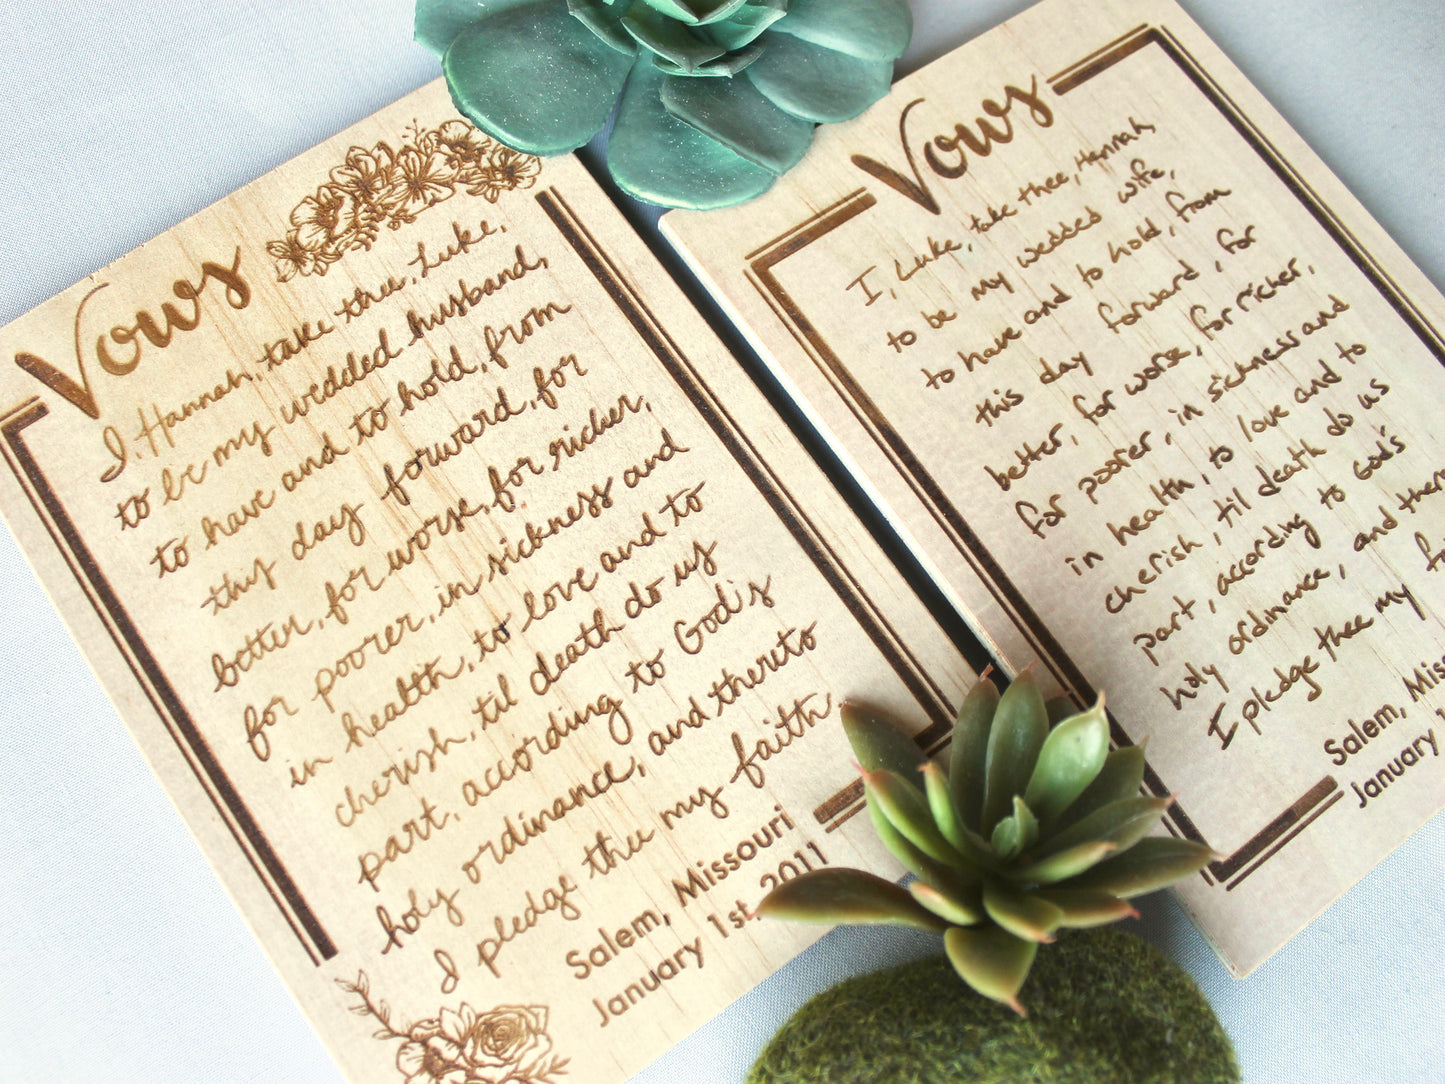 Vows
I, Hannah, take thee, Luke,
to be my wedded husband,
to have and to hold, from
this day forward, for
better, for worse, for richer,
for poorer, in sickness and
in health, to love and to
cherish, til death do us
part, according to God's
holy ordinance, and thereto
I pledge thee my faith
Salem, Missouri
January 1st, 2011
Vows
I, Luke, take thee, Hannah,
to be my wedded wife,
to have and to hold, from
this day forward, for
better, for worse, for richer,
for poorer, in sickness and
in health, to love and to
cherish, til death do us
part, according to God's
holy ordinance, and there
I pledge thee my f
Salem, Miss
January 1